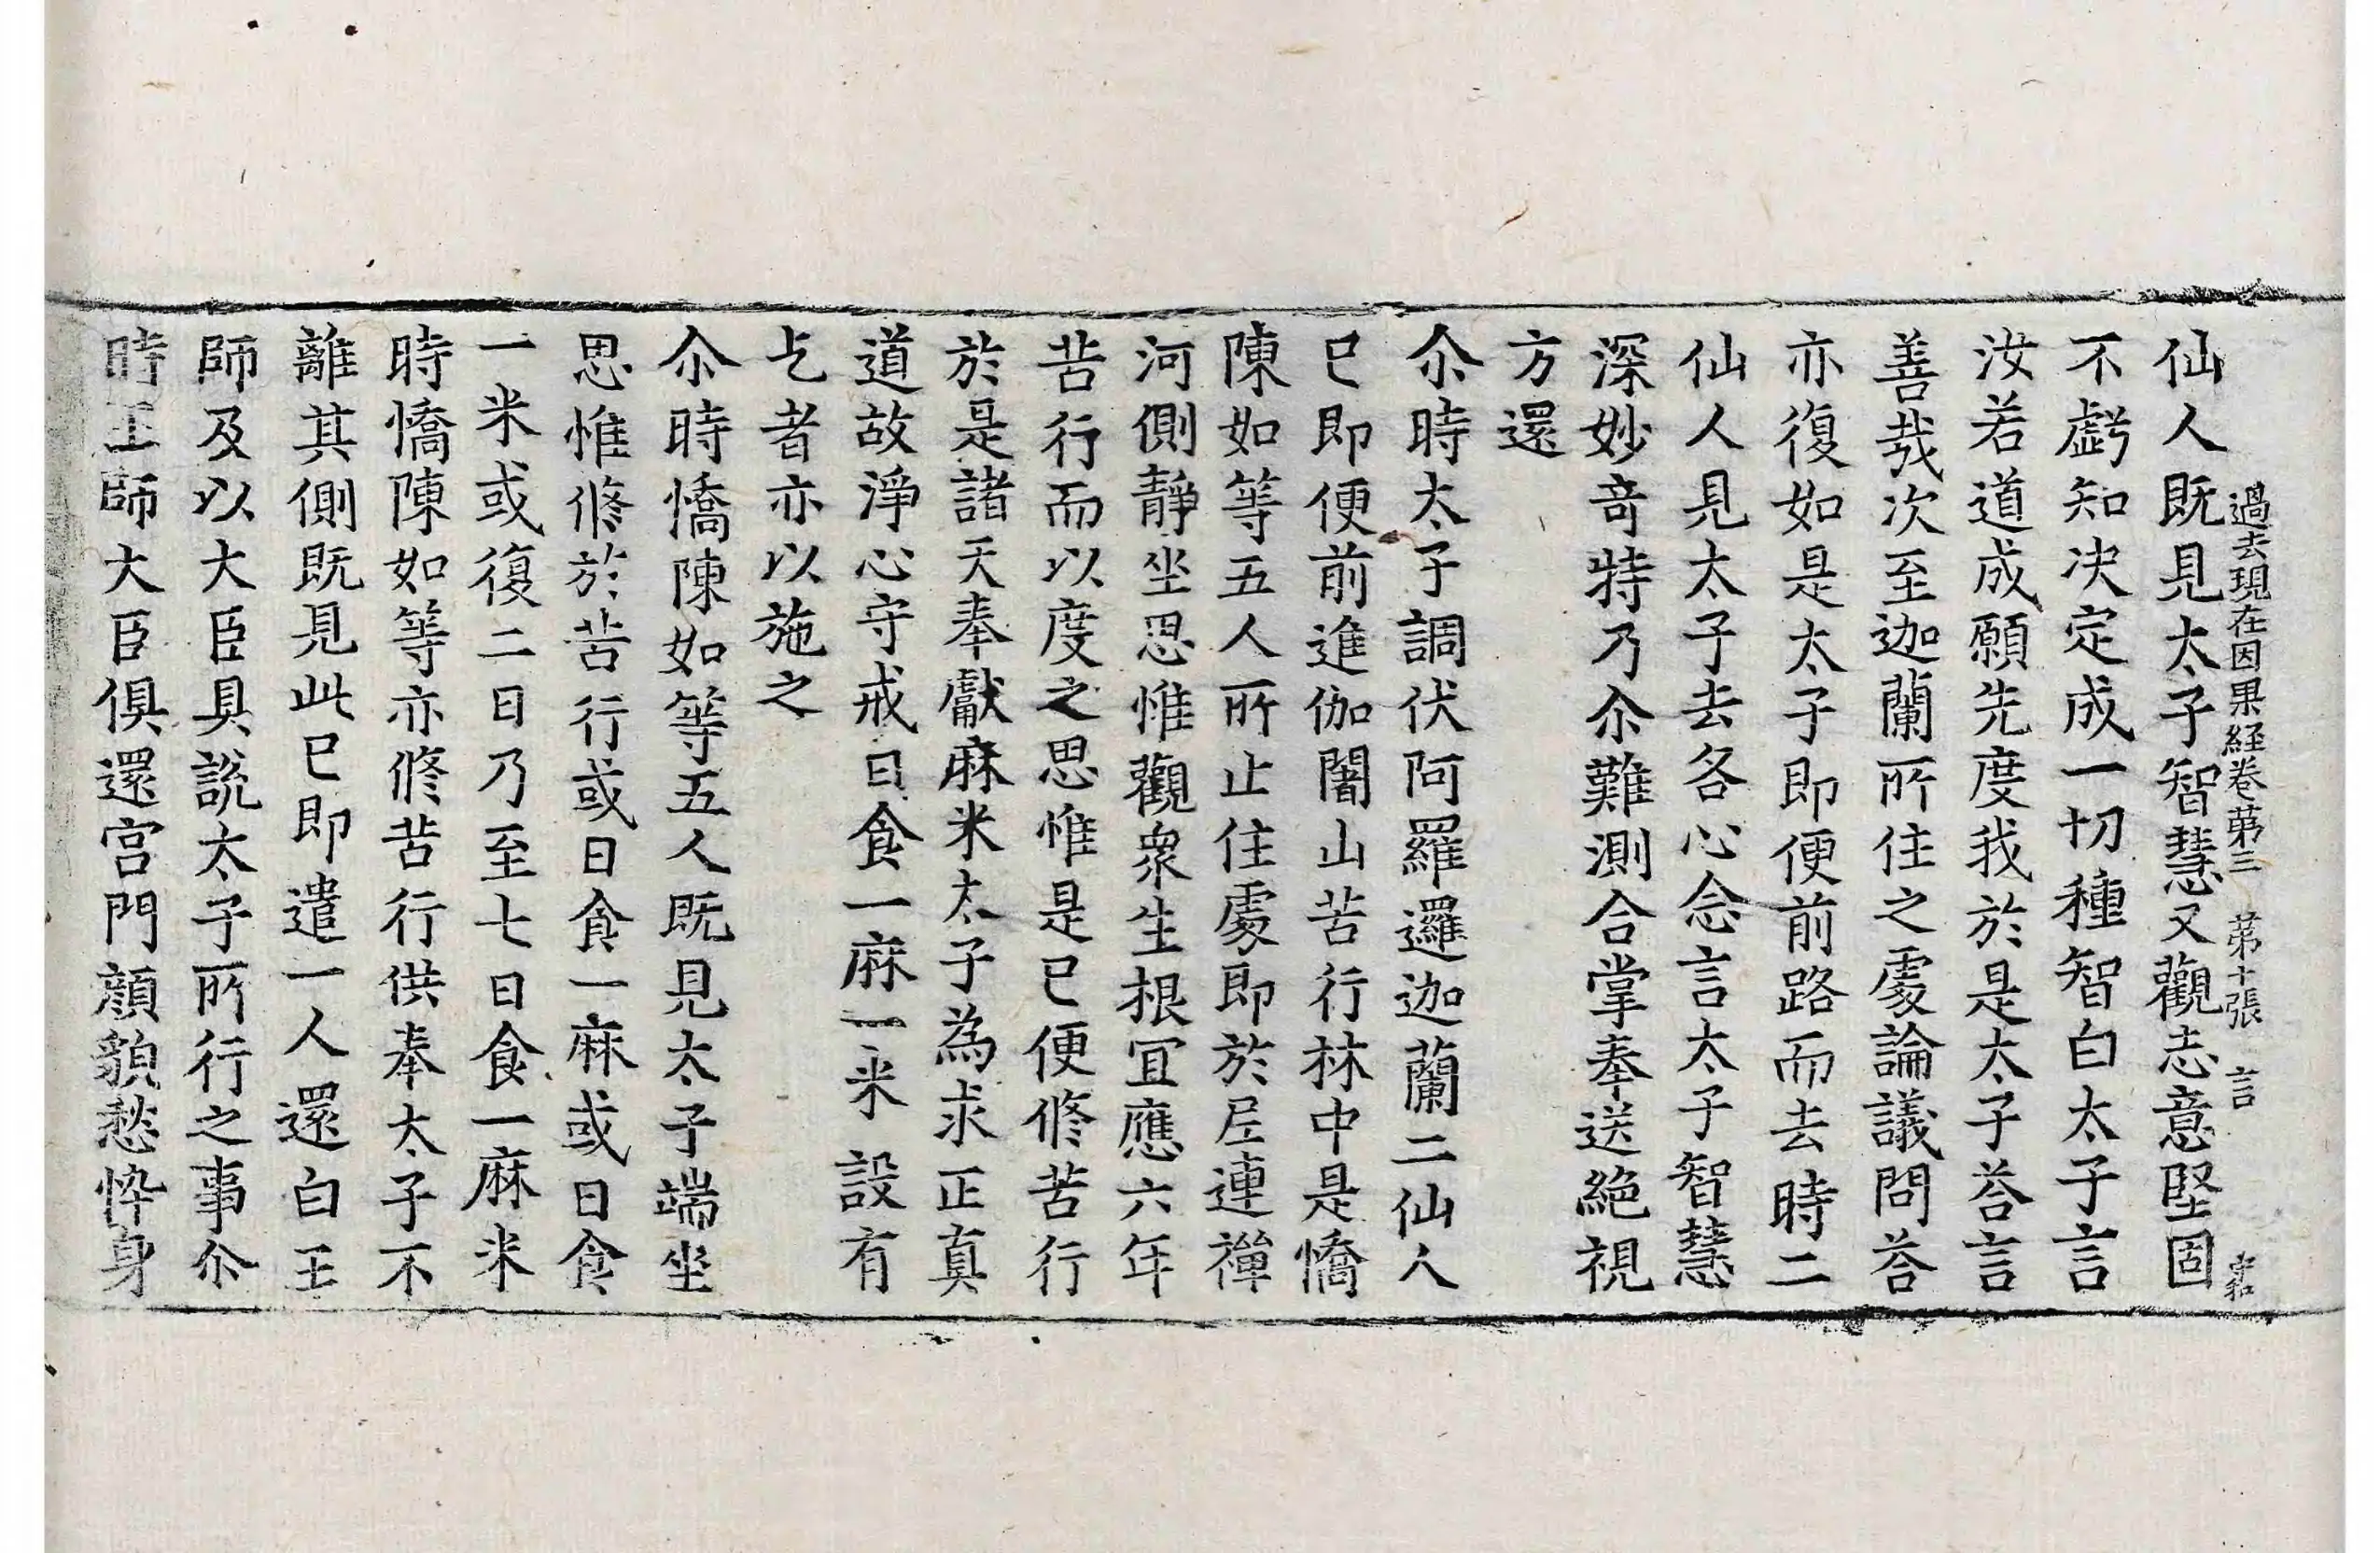 過去現在因果経卷苐三　苐十張　言
仙人既見太子智慧又觀志意堅固
不虧知决定成一切種智白太子言
汝若道成願先度我於是太子荅言
善㢤次至迦蘭所住之處論議問荅
亦復如是太子即便前路而去時二
仙人見太子去各心念言太子智慧
深妙竒特乃尒難測合掌奉送絶視
方還
尒時太子調伏阿羅邏迦蘭二仙人
已即便前進伽闍山苦行林中是憍
陳如等五人所止住處即於尼連禪
河側靜坐思惟觀衆生根宜應六年
苦行而以度之思惟是已便修苦行
於是諸天奉獻麻米太子為求正真
道故淨心守戒日食一麻一米設有
乞者亦以施之
尒時憍陳如等五人既見太子端坐
思惟修於苦行或日食一麻或日食
一米或復二日乃至七日食一麻米
時憍陳如等亦修苦行供奉太子不
離其側既見此已即遣一人還白王
師及以大臣具説太子所行之事尒
時王師大臣俱還宫門顔貌愁悴身